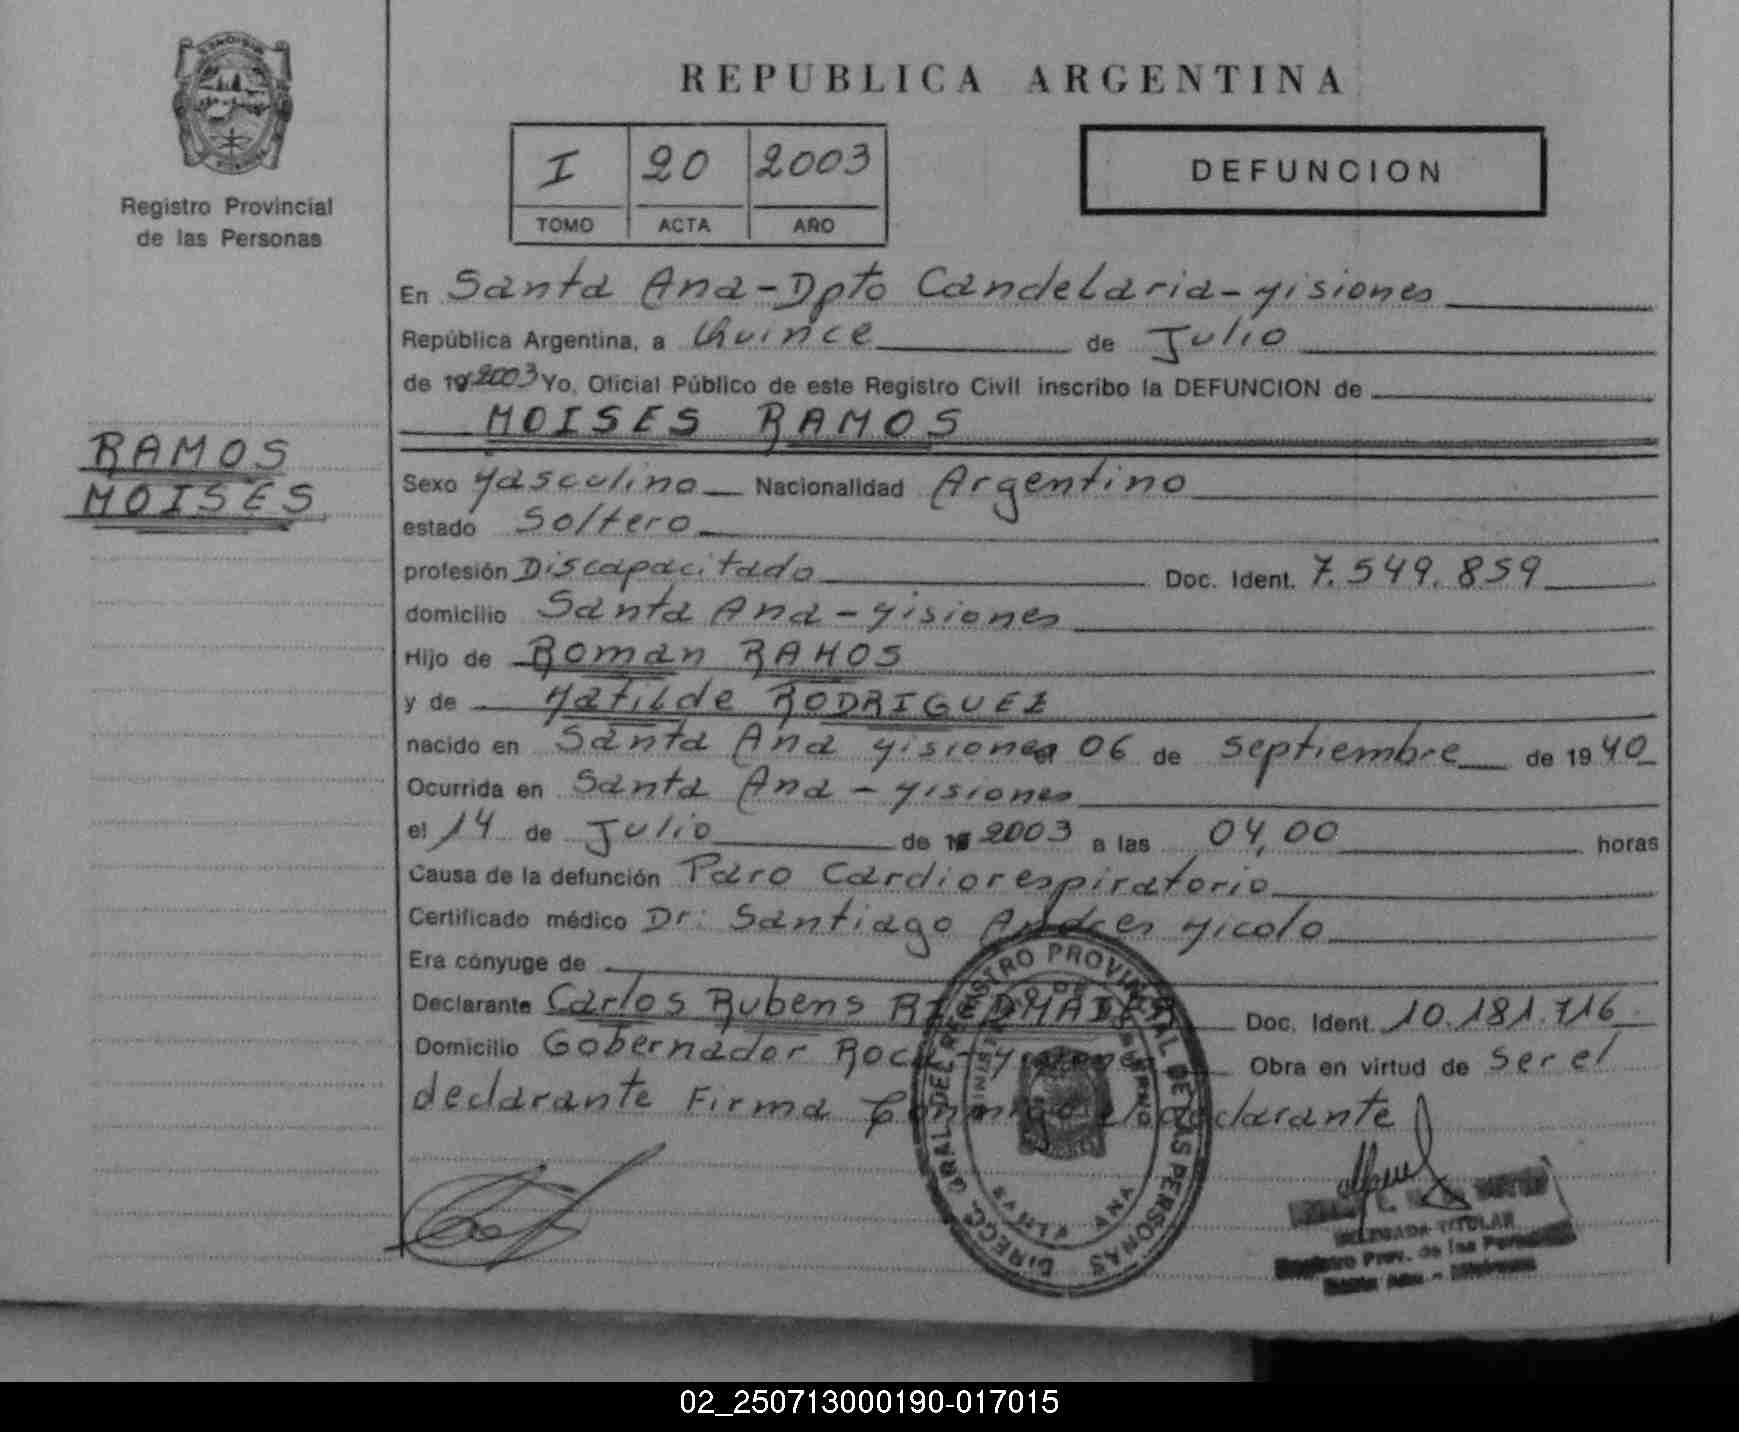 REPUBLICA ARGENTINA
Registro Provincial
de las Personas
I 20 2003
TOMO ACTA AÑO
DEFUNCION
En Santa Ana-Dpto Candelaria-Misiones
República Argentina, a Quince de Julio
de 19 2003 Yo, Oficial Público de este Registro Civil inscribo la DEFUNCION de
MOISES RAMOS
RAMOS
MOISES
Sexo Masculino Nacionalidad Argentino
estado Soltero
profesión Discapacitado Doc. Ident. 7.549.859
domicilio Santa Ana-Misiones
Hijo de Roman RAMOS
y de Matilde RODRIGUEZ
nacido en Santa Ana Misiones el 06 de Septiembre de 1940
Ocurrida en Santa Ana-Misiones
el 14 de Julio de 2003 a las 04,00 horas
Causa de la defunción Paro Cardiorespiratorio
Certificado médico Dr: Santiago Andres Micolo
Era cónyuge de
Declarante Carlos Rubens Doc. Ident. 10.181.716
Domicilio Gobernador Roca-Misiones Obra en virtud de Ser el
declarante Firma Conmigo el declarante
DIRECC. GRAL. DEL REGISTRO PROVINCIAL DE LAS PERSONAS
MINISTERIO DE GOBIERNO
SANTA ANA
DELEGADA TITULAR
Registro Prov. de las Personas
Santa Ana - Misiones
02_250713000190-017015